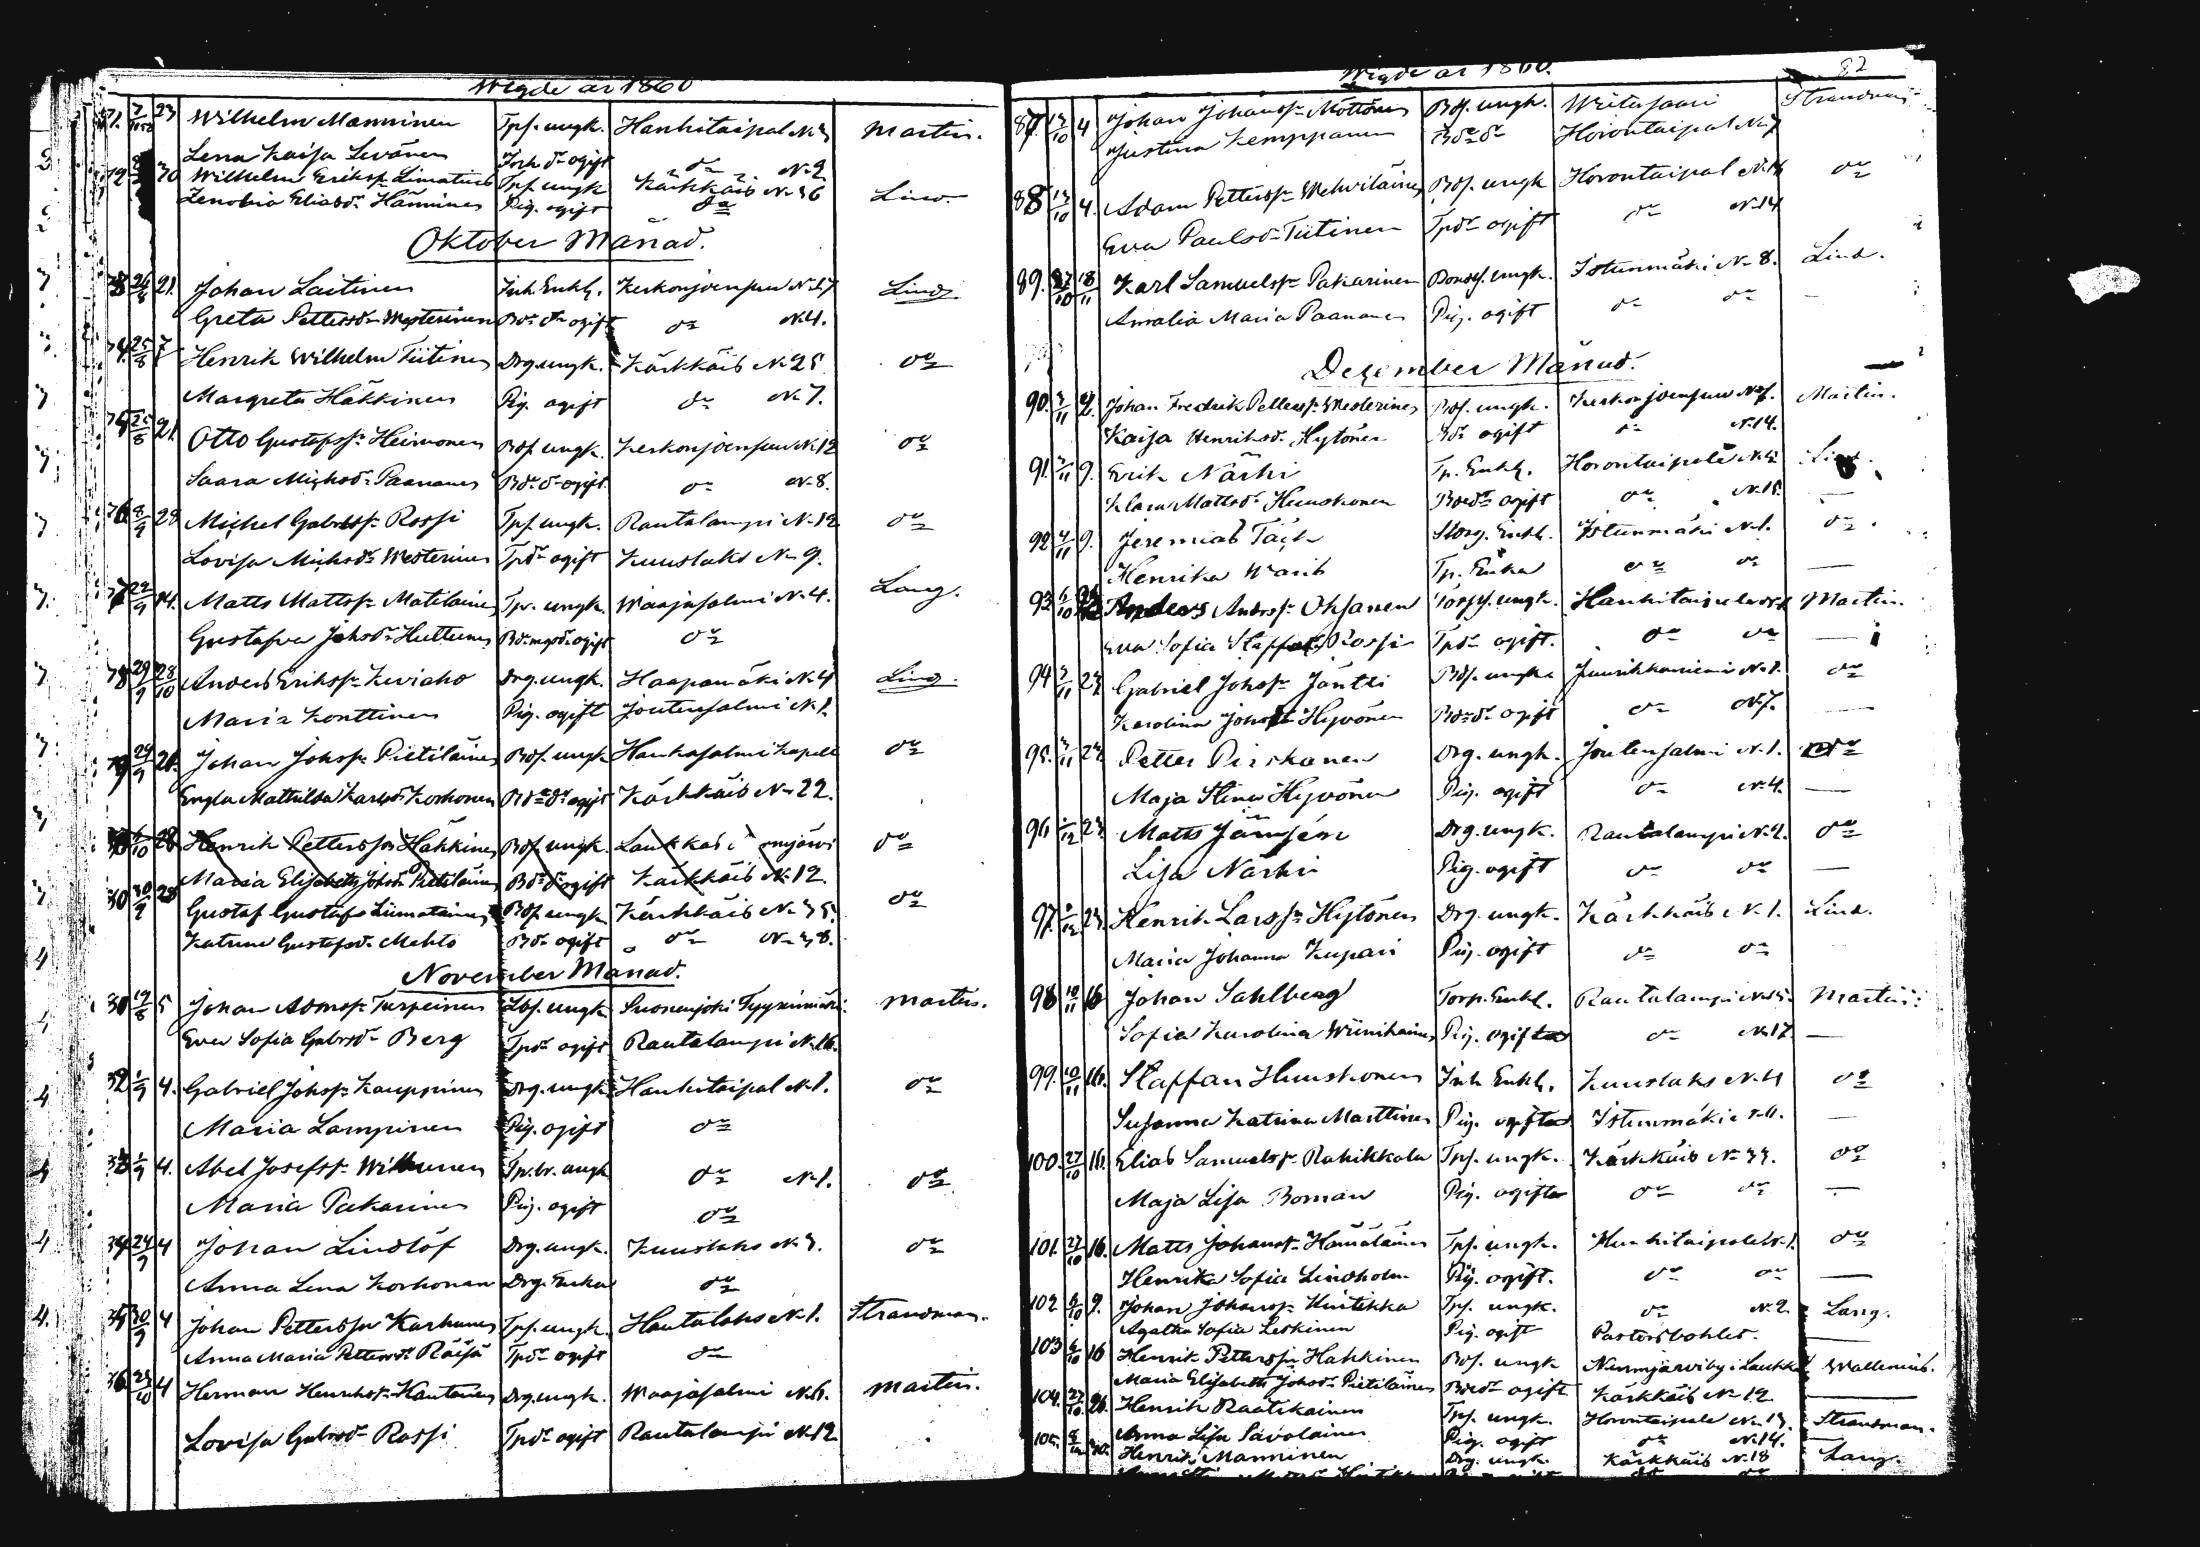 Wigde år 1860
71. 23 Wilhelm Manninen Tpf. ungk. Hankitaipal N. 3 Martin.
Lena Kaisa Levänen Inh. dr ogift do N. 2
72 30 Wilhelm Eriksf. Limatius Tpf. ungk Kärkkäis N. 36 Lind.
Zenobia Eliasdr Hänninen Pig. ogift do
Oktober Månad.
73 26/8 21. Johan Laitinen Inh. Enkl. Keskonjoensuu N. 17 Lind.
Greta Pettersdr Westerinen Bdr dr ogift do N. 4.
74 25/8 7 Henrik Wilhelm Tiitinen Drg. ungk. Kärkkäis N. 25 do
Margreta Häkkinen Pig. ogift do N. 7.
75 25/8 21. Otto Gustafsf. Heimonen Bdf. ungk. Keskonjoensuu N. 12 do
Saara Michsdr Paananen Bdr dr ogift. do N. 8.
76 8/9 28 Michel Gabrielsf. Rossi Tpf. ungk. Rautalampi N. 12 do
Lovisa Michsdr Westerinen Tpdr ogift Kuuslaks N. 9.
77 22/9 14. Matts Mattsf. Matilainen Tp. ungk. Waajasalmi N. 4. Lang.
Gustafva Johsdr Huttunen ogift do
78 29/9 28/10 Anders Eriksf. Kiviaho Drg. ungk. Haapamäki N. 4 Lind.
Maria Konttinen Pig. ogift Joutensalmi N. 1.
79 29/9 21. Johan Johsf. Pietiläinen Bdf. ungk Hankasalmi Kapell do
Engla Mathilda Karlsdr Korhonen Bdr dr ogift Kärkkäis N. 22.
6/10 28 Henrik Pettersson Häkkinen Bdf. ungk. Laukkas do
Maria Elisabeth Johsdr Pietiläinen Bdr dr ogift Kärkkäis N. 12
80 30/9 28 Gustaf Gustafs Liimatainen Bdf. ungk Kärkkäis N. 35. do
Katrina Gustafsdr Mehto Bdr ogift do N. 38.
November Månad.
19/8 5 Johan Admsf. Turpeinen Lbf. ungk Suonenjoki Tyyrinmäki. Martin.
Eva Sofia Gabrsdr Berg Tpdr ogift Rautalampi N. 16.
82 1/9 4. Gabriel Johsf. Kauppinen Drg. ungk Hankitaipal N. 1. do
Maria Lampinen Pig. ogift do
83 1/9 4. Abel Josefsf. Wilhunen Tp. br. ungk do N. 1. do
Maria Pakarinen Pig. ogift do
84 24/9 4 Johan Lindlöf Drg. ungk. Kuuslaks N. 3. do
Anna Lena Korhonen Drg. Enka do
85 30/9 4 Johan Pettersson Karhunen Tpf. ungk. Hautalaks N. 1. Strandman.
Anna Maria Pettersdr Räisä Tpdr ogift do
86 23/10 4 Herman Henriksf. Kautonen Drg. ungk. Waajasalmi N. 6. Martin.
Lovisa Gabrsdr Rossi Tpdr ogift Rautalampi N. 12
Wigde år 1860. 82
87. 13/10 4 Johan Johansf. Möttönen Bdf. ungk. Strandman
Justina Kemppainen Bdr dr Horontaipal N. 7
88 13/10 4. Adam Pettersf. Wehviläinen Bdf. ungk Horontaipal do
Eva Paulsdr Tiitinen Tpdr ogift do N. 14
89. 27/10 18/11 Karl Samuelsf. Pakarinen Bondef. ungk. Istunmäki N. 8. Lind.
Amalia Maria Paananen Pig. ogift do do
Dezember Månad.
90. 3/11 Johan Fredrik Pettersf. Westerinen Bdf. ungk. Keskonjoensuu N. 7. Martin.
Kaisa Henriksdr Hytönen Bdr ogift do N. 14.
91. 3/11 9. Erik Närhi Tp. Enkl. Horontaipale Lind.
Klara Mattsdr Huuskonen Bdr dr ogift do N. 15.
92 4/11 9. Jeremias Täck Storg. Enkl. Istunmäki N. 1. do
Henrika Waris Tp. Enka do do
93 Anders Andrsf. Oksanen Torpf. ungk. Hankitaipale Martin.
Eva Sofia Staffsdr Rossi Tpdr ogift. do do
94 3/11 23 Gabriel Johsf. Jäntti Bdf. ungk. N. 1. do
Karolina Johsdr Hyvönen Bdr dr ogift do N. 7.
95. 3/11 23 Petter Pirskanen Drg. ungk. Joutensalmi N. 1. do
Maja Stina Hyvönen Pig. ogift do N. 4.
96 23 Matts Jämsén Drg. ungk. Rautalampi N. 2. do
Lisa Närhi Pig. ogift do do
97. 23 Henrik Larsf. Hytönen Drg. ungk. Kärkkäis N. 1. Lind.
Maria Johanna Kupari Pig. ogift do do
98 10/11 16 Johan Sahlberg Torp. Enkl. Rautalampi Martin.
Sofia Karolina Wiinikainen Pig. ogifta do N. 17
99. 10/11 16. Staffan Huuskonen Inh. Enkl. Kuuslaks N. 4 do
Susanna Katrina Marttinen Pig. ogifta Istunmäki
100. 27/10 16. Elias Samuelsf. Rahikkala Tpf. ungk. Kärkkäis N. 33. do
Maja Lisa Boman Pig. ogifta do do
101. 27/10 16. Matts Johansf. Hämäläinen Tpf. ungk. Hankitaipale N. 1. do
Henrika Sofia Lindholm Pig. ogift. do do
102 6/10 9. Johan Johansf. Hintikka Tpf. ungk. do N. 2. Lang.
Agatha Sofia Leskinen Pig. ogift Pastorsbohlet.
103 6/10 16 Henrik Pettersson Häkkinen Bdf. ungk Niemjärviby i Laukkas Wallenius.
Maria Elisabeth Johsdr Pietiläinen Bdr dr ogift Kärkkäis N. 12
104. 27/10 26. Henrik Raatikainen Tpf. ungk. Horontaipale N. 13 Strandman.
Anna Lisa Savolainen Pig. ogift do N. 14.
105. Henrik Manninen Drg. ungk. Kärkkäis N. 18 Lang.